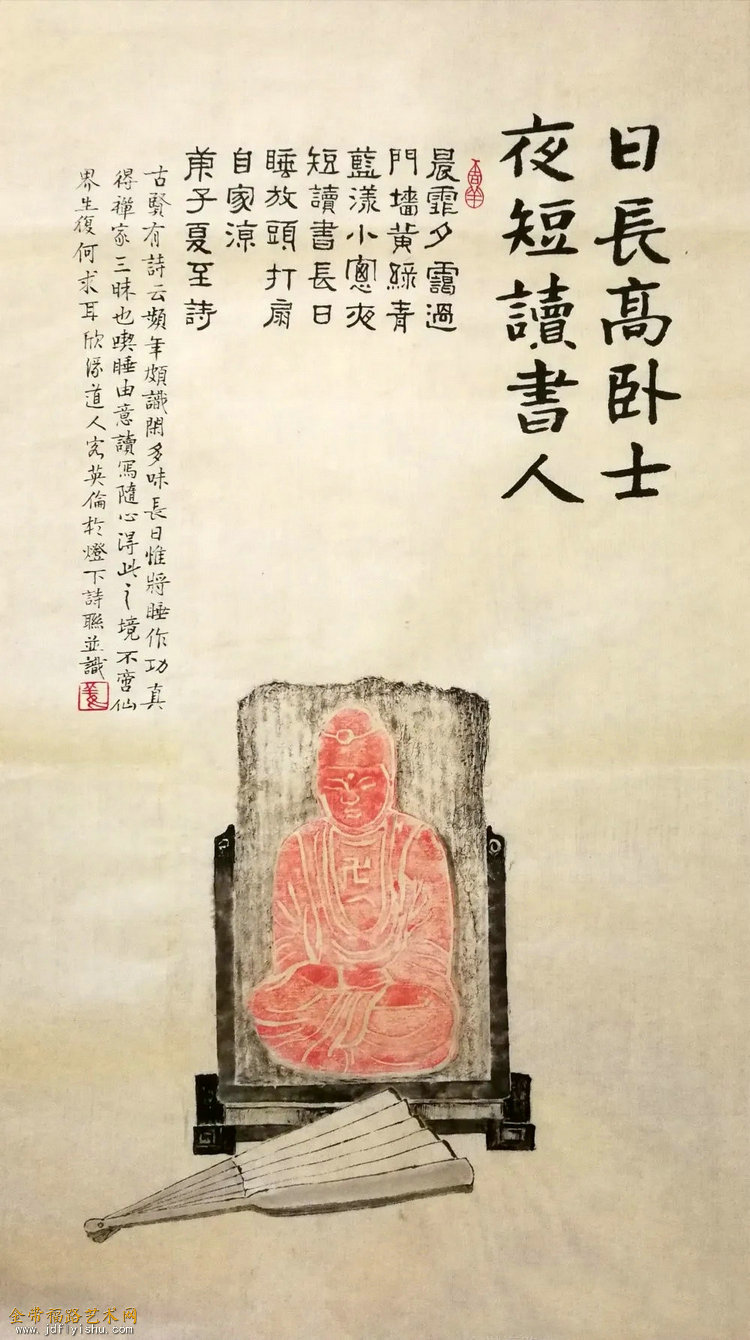 日長高卧士
夜短讀書人
晨霏夕靄過
門墻黃綠青
藍漾小窗夜
短讀書長日
睡放頭打扇
自家涼
庚子夏至詩
古賢有詩云頻年頗識閑多味長日惟將睡作功真
得禪家三昧也喫睡由意讀寫隨心得此之境不啻仙
界生復何求耳欣緣道人客英倫於燈下詩聯並識
金带福路艺术网
www.jdflyishu.com